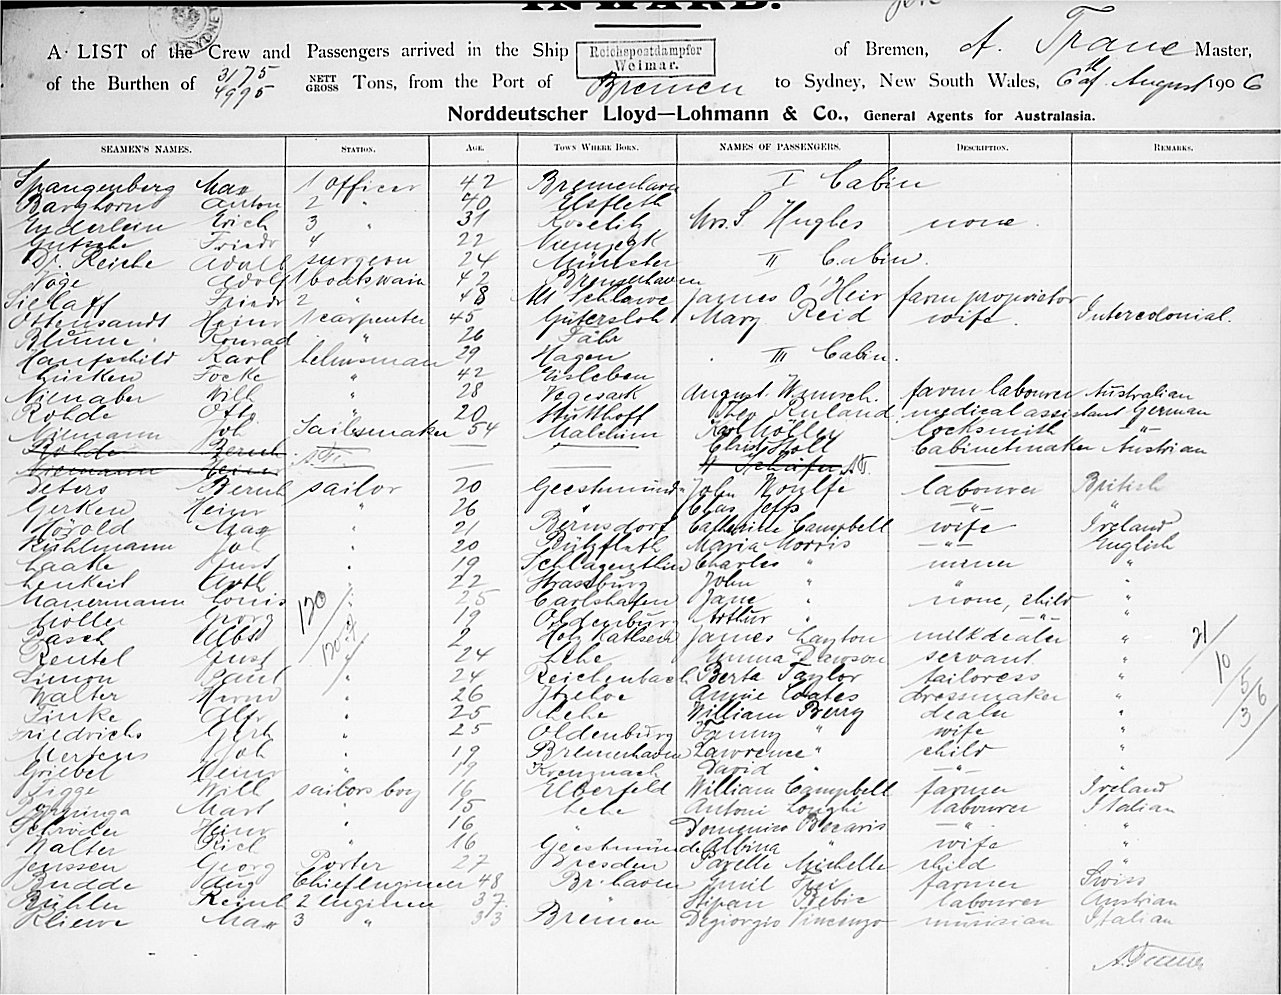 INWARD.
A LIST of the Crew and Passengers arrived in the Ship Reichspostdampfer Weimar. of Bremen, A. Traue Master,
of the Burthen of 3175 4995 NETT GROSS Tons, from the Port of Bremen to Sydney, New South Wales, 6th of August 1906
Norddeutscher Lloyd—Lohmann & Co., General Agents for Australasia.
SEAMEN'S NAMES. STATION. AGE. TOWN WHERE BORN. NAMES OF PASSENGERS. DESCRIPTION. REMARKS.
Spangenberg Max 1 Officer 42 Bremerhaven I Cabin
Barghorn Anton 2 " 40 Elsfleth
Enderlein Erich 3 " 31 Koselitz Mrs. S Hughes none
Gutsche Friedr 4 22 Niemegk
Dr. Reiche Adolf surgeon 24 Münster II Cabin.
Noge Adolf 1 boatswain 42 Bremerhaven
Sielaff Friedr 2 " 48 Schlawe James O'Heir farm proprietor
Ottensandt Heinr 1 carpenter 45 Gütersloh Mary Reid wife. Intercolonial.
Blume Konrad " 26 Fähr
Haufschild Karl helmsman 29 Hagen III Cabin.
Lücken Focke " 42 Eisleben
Nienaber Will " 28 Vegesack August Wunsch. farm labourer Australian
Rohde Otto " 20 Stutthoff Theo Ruland medical assistant German
Joh Sailsmaker 54 Malchim Karl Möller locksmith "
Rohde Bernh Christ Stoll Cabinetmaker Austrian
Niemann Heinr Schäfer
Peters Bernh sailor 20 Geestemünd John Woulfe labourer British
Gerken Heinr " 26 " Chas Jeffs " "
Hörold Max " 21 Bernsdorf Catherine Campbell wife Ireland
Kühlmann Joh " 20 Bützfleth Maria Morris " English
Laake Just " 19 Charles " miner "
Lenkeit Arth " 22 Strassburg John " " "
Mauermann Louis " 25 Carlshafen Jane " none, child "
Möller Georg " 19 Oldenburg Arthur " " "
Pasch Albst 2 James Layton milkdealer "
Rentel Gust " 24 Lehe Emma Dawson servant "
Simon Paul " 24 Reichenbach Berta Taylor tailoress "
Walter Herm " 26 Itzehoe Annie Coates dressmaker "
Finke Alfr " 25 Lehe William Berry dealer "
Friedrichs Gerh " 25 Oldenburg Fanny " wife "
Mertens Joh " 19 Bremerhaven Lawrence " child "
Griebel Heinr " 19 Kreuznach David " " "
Tigge Will sailors boy 16 Elberfeld William Campbell farmer Ireland
Mart " 15 Lehe Antoni Longhi labourer Italian
Schröder Heinr " 16 Domenico Bocaris " "
Walter Rich " 16 Geestemünde Albina " wife "
Jenssen Georg Porter 27 Dresden Parelle Michelle child "
Budde Aug Chief Engineer 48 Br.haven Emil Frei farmer Swiss
Bühler Reinh 2 engineer 37. Stipan Bebic labourer Austrian
Kliewe Max 3 " 33 Bremen Degiorgio Vincenzo musician Italian
120
21/
10
/5/6
/3
A. Traue